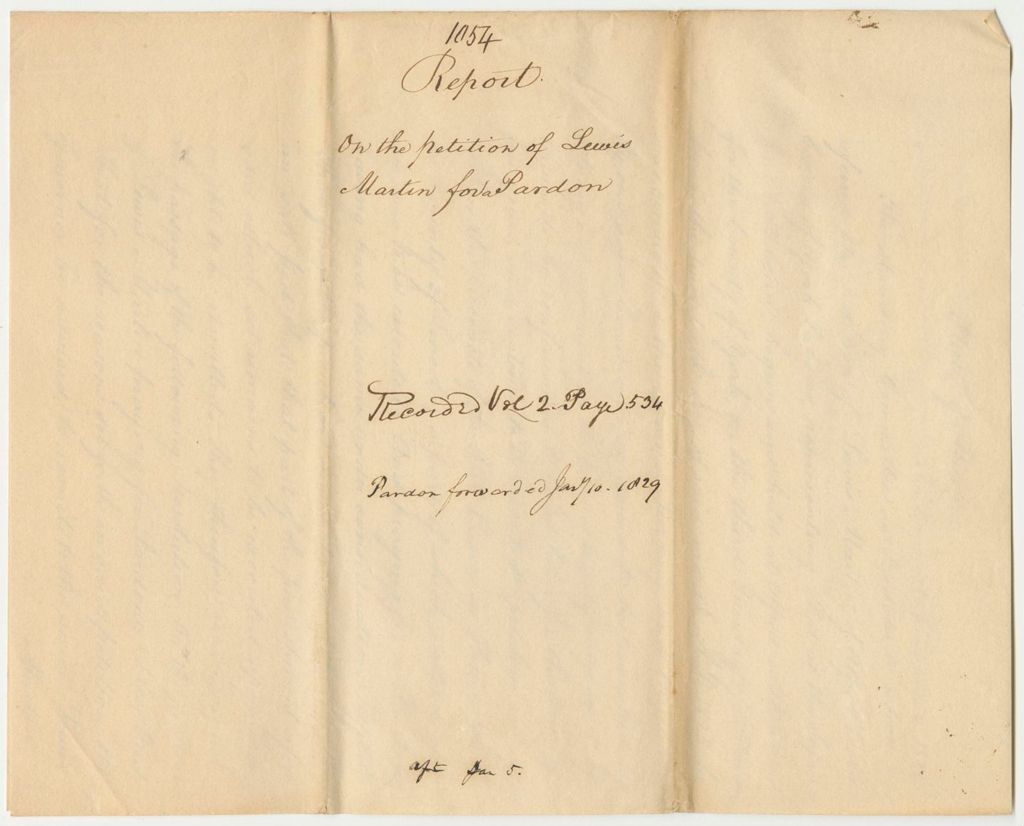 1054
Report.
On the petition of Lewis
Martin for a Pardon
Recorded Vol 2. Page 534
Pardon forwarded Jany 10. 1829
aft Jan 5.